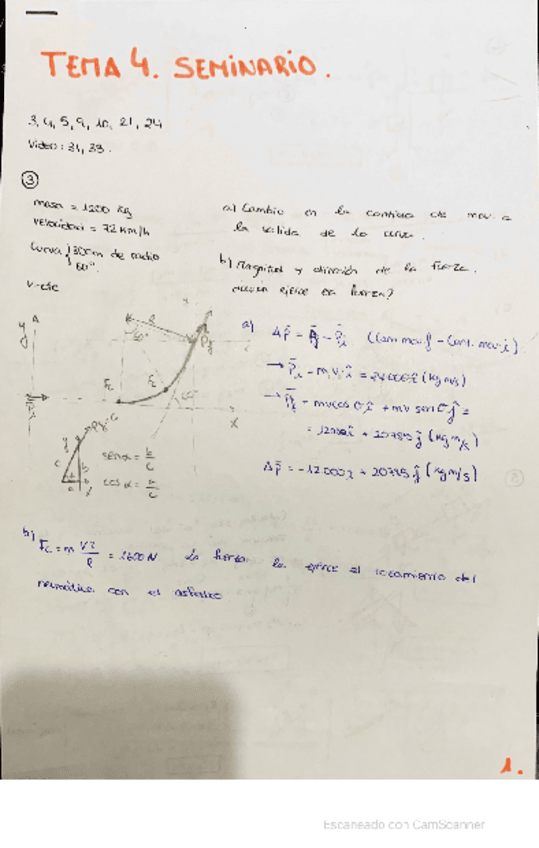 TEMA 4. SEMINARIO.
3, 4, 5, 9, 10, 21, 24
Video: 31, 33.
③
masa = 1200 kg
velocidad = 72 km/h
Curva } 300m de radio
60°
v = cte
a) Cambio en la cantidad de mov a
la salida de la curva.
b) Magnitud y dirección de la fuerza.
¿quién ejerce esa fuerza?
y
x
R
60°
Fc
Fc
60°
Pf
Pi
senα = b/c
cosα = a/c
a) Δp̄ = p̄f - p̄i (Cant. mov. f - Cant. mov. i)
→ p̄i = m·vi·î = 24000 î (kg m/s)
→ p̄f = mv cos σ î + mv sen σ ĵ =
= 12000 î + 20785 ĵ (kg m/s)
Δp̄ = -12000 î + 20785 ĵ (kg m/s)
b) Fc = m v²/R = 1600 N La fuerza la ejerce el rozamiento del
neumático con el asfalto
1.
Escaneado con CamScanner